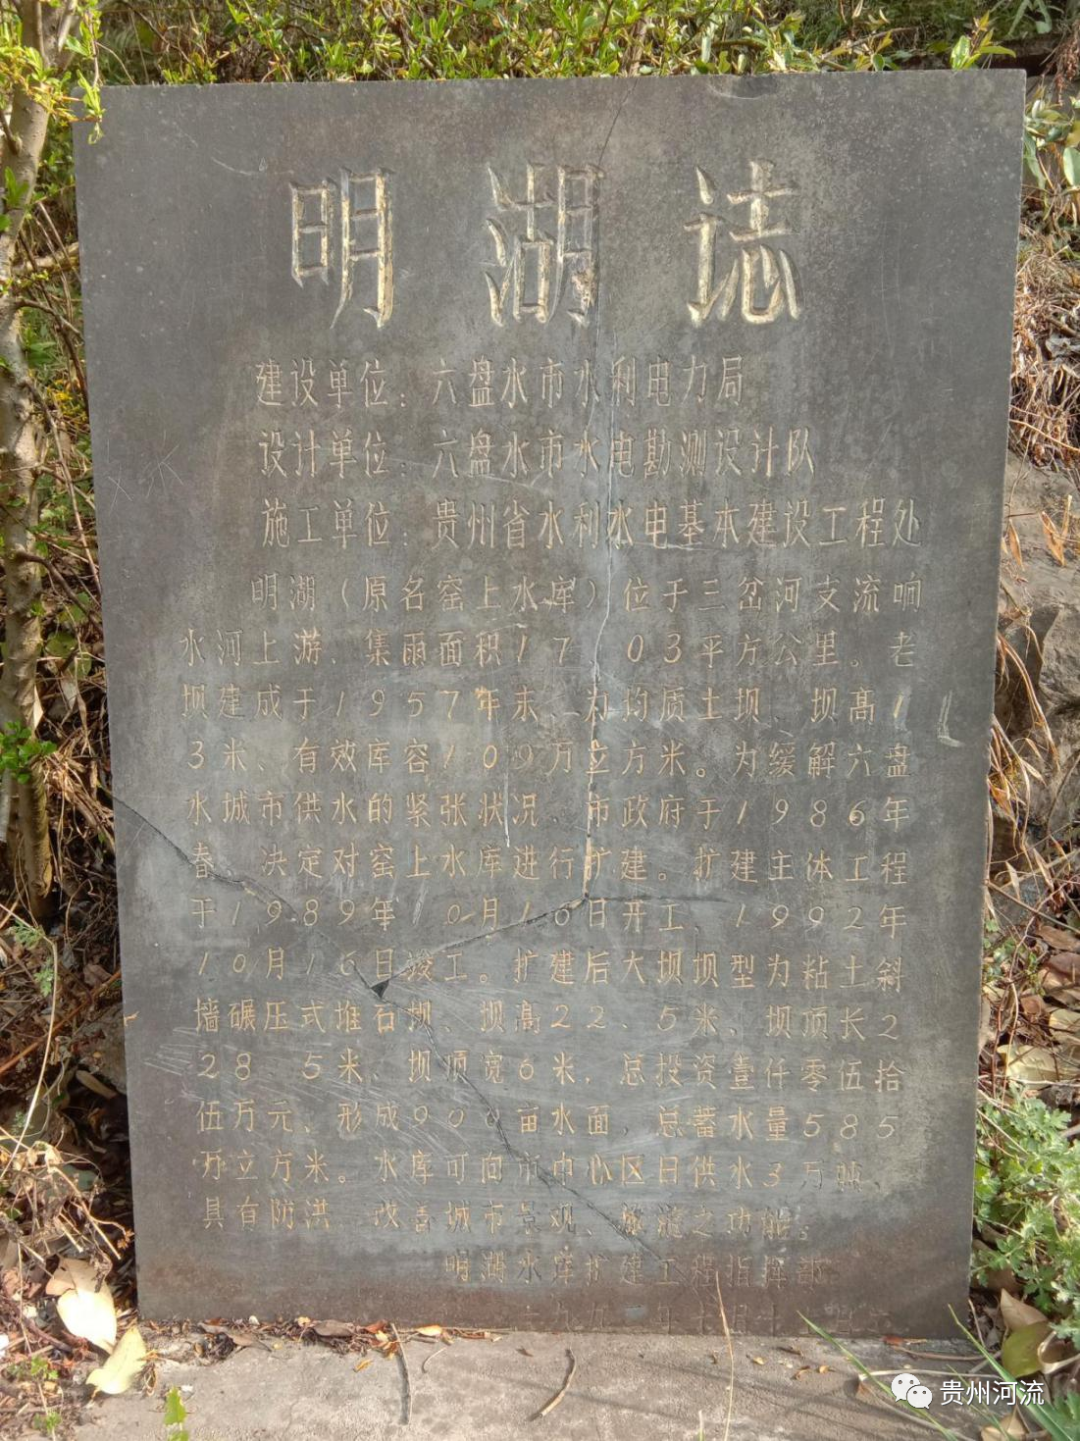 明湖志
建设单位：六盘水市水利电力局
设计单位：六盘水市水电勘测设计队
施工单位：贵州省水利水电基本建设工程处
明湖（原名窑上水库）位于三岔河支流响
水河上游、集雨面积17.03平方公里。老
坝建成于1957年末、为均质土坝、坝高1
3米、有效库容109万立方米。为缓解六盘
水城市供水的紧张状况、市政府于1986年
春 决定对窑上水库进行扩建。扩建主体工程
于1989年10月16日开工、1992年
10月16日竣工。扩建后大坝坝型为粘土斜
墙碾压式堆石坝、坝高22、5米、坝顶长2
28、5米、坝顶宽6米、总投资壹仟零伍拾
伍万元、形成900亩水面、总蓄水量585
万立方米。水库可向市中心区日供水3万吨、
具有防洪 改善城市景观、旅游之功能。
明湖水库扩建工程指挥部
贵州河流